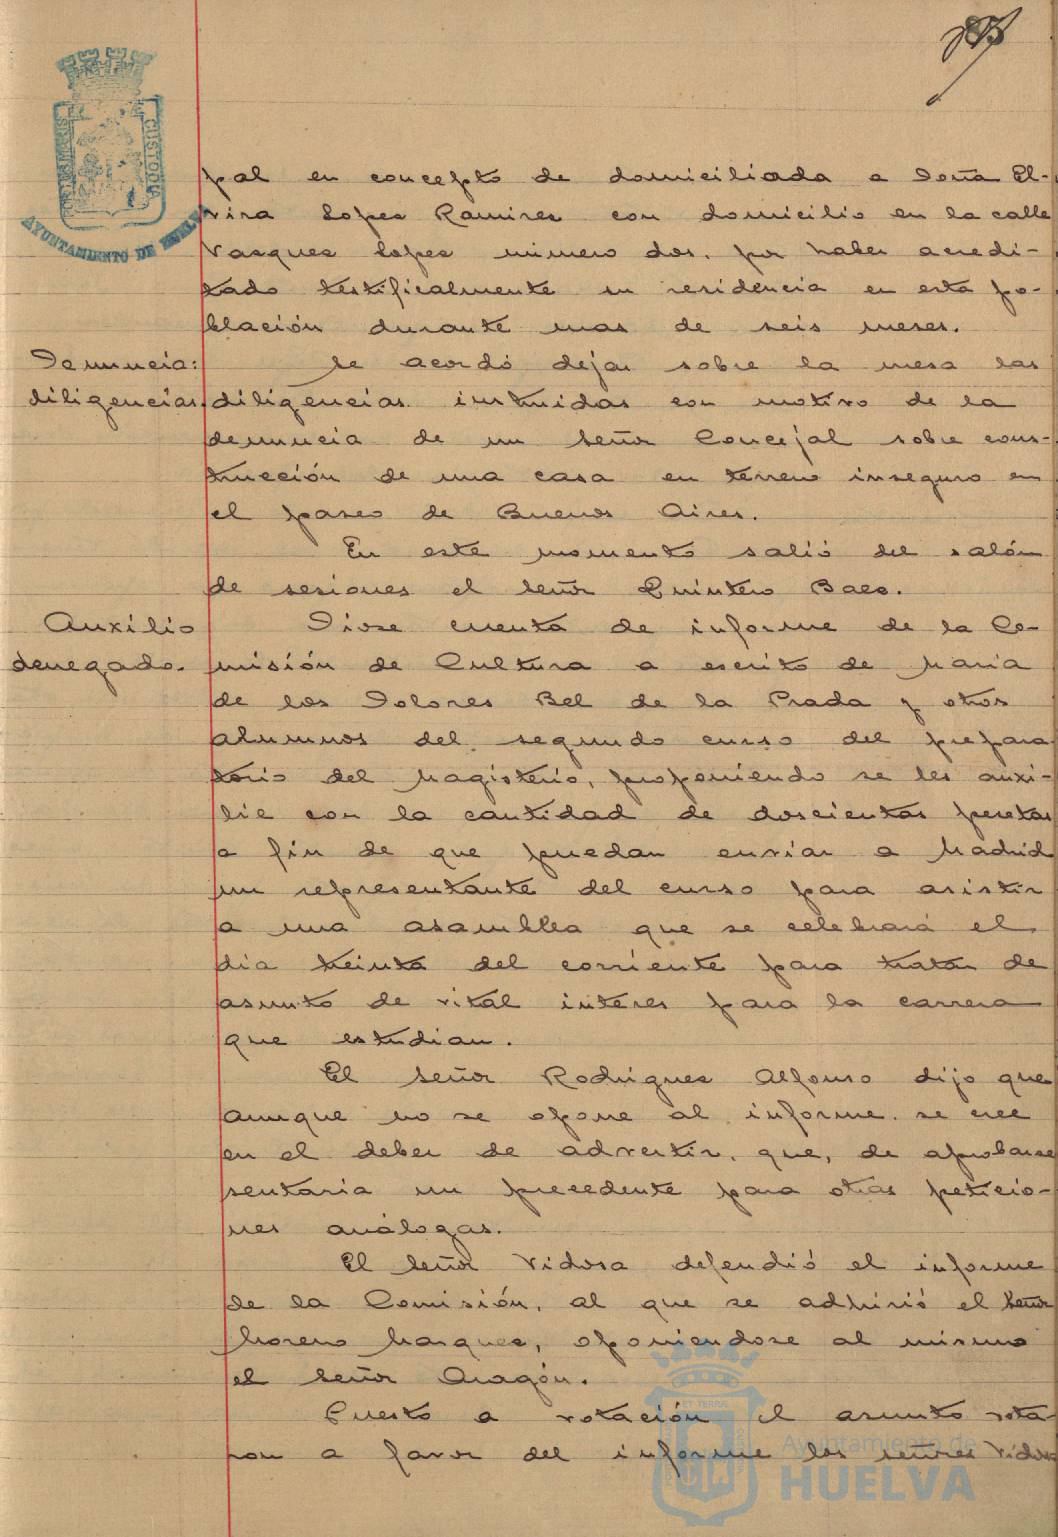 AYUNTAMIENTO DE HUELVA
CUSTODIA
pal en concepto de domiciliada a Doña El-
vira Lopez Ramirez con domicilio en la calle
Vazquez Lopez número dos, por haber acredi-
tado testificalmente su residencia en esta po-
blación durante mas de seis meses.
Denuncia:
diligencias.
Se acordó dejar sobre la mesa las
diligencias instruidas con motivo de la
denuncia de un Señor Concejal sobre cons-
trucción de una casa en terreno inseguro en
el paseo de Buenos Aires.
En este momento salió del salón
de sesiones el Señor Quintero Baez.
Auxilio
denegado.
Diose cuenta de informe de la Co-
misión de Cultura a escrito de Maria
de los Dolores Bel de la Prada y otros
alumnos del segundo curso del prepara
torio del Magisterio, proponiendo se les auxi-
lie con la cantidad de doscientas pesetas
a fin de que puedan enviar a Madrid
un representante del curso para asistir
a una asamblea que se celebrará el
dia treinta del corriente para tratar de
asunto de vital interes para la carrera
que estudian.
El Señor Rodriguez Alfonso dijo que
aunque no se opone al informe se cree
en el deber de advertir, que, de aprobarse
sentaria un precedente para otras peticio-
nes análogas.
El Señor Vidosa defendió el informe
de la Comisión, al que se adhirió el Señor
Moreno Marquez, oponiendose al mismo
el Señor Aragón.
Puesto a votación el asunto vota
ron a favor del informe los señores Vidosa
Ayuntamiento de
HUELVA